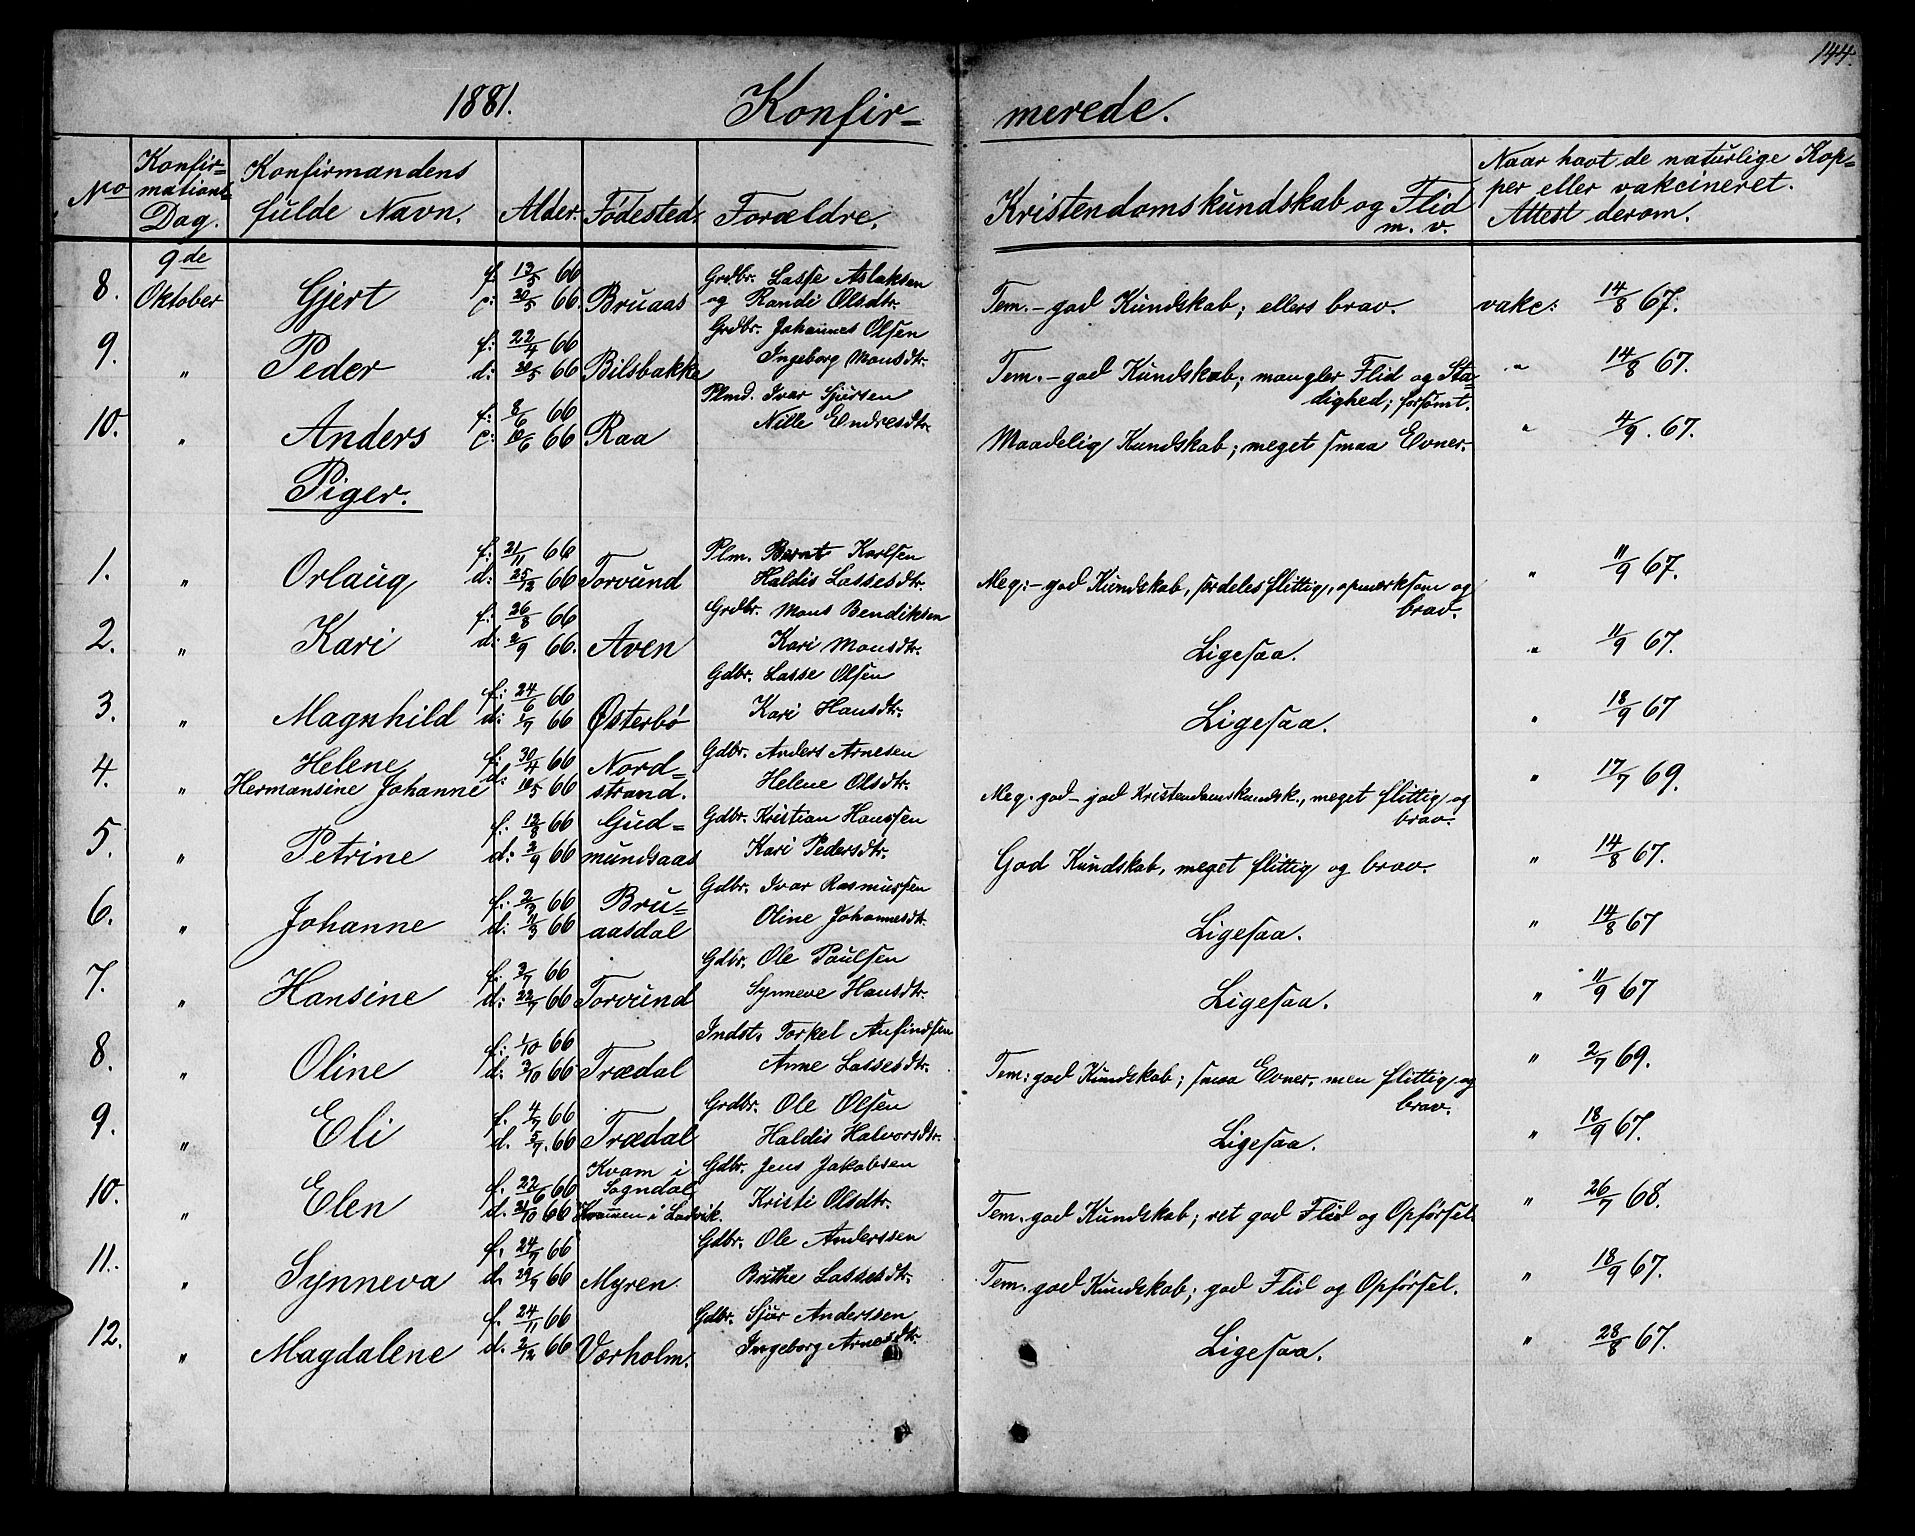 144.
1881. Konfir= merede.
No Konfir=mations Dag. Konfirmandens fulde Navn. Alder. Fødested. Forældre. Kristendomskundskab og Flid m. v. Naar havt de naturlige Kop=per eller vakcineret. Attest derom.
9de
8. Oktober Gjert f. 13/5 66 Bruaas Grdbr. Lasse Aslaksen Tem.- god Kundskab; ellers brav. vakc: 14/8 67.
c. 30/5 66 og Randi Olsdtr.
9. " Peder f: 22/4 66 Bilsbakke Grdbr. Johannes Olsen Tem.- god Kundskab; mangler Flid og Sta= " 14/8 67.
d: 20/5 66 Ingeborg Monsdtr. dighed; forsømt.
10. " Anders f: 8/6 66 Raa Plmd. Ivar Sjursen Maadelig Kundskab; meget smaa Evner. " 4/9. 67.
c: 10/6 66 Nille Endresdtr.
Piger.
1. " Orlaug f: 21/11 66 Torvund Plm. Bernt Karlsen Meg:- god Kundskab, særdeles flittig, opmærksom og " 11/9 67.
d: 25/12 66 Haldis Lassesdtr. brav.
2. " Kari f: 26/8 66 Aven Grdbr. Mons Bendiksen Ligesaa. " 11/9 67.
d: 2/9 66. Kari Monsdtr.
3. " Magnhild f: 24/6 66 Østerbø Gdbr. Lasse Olsen Ligesaa. " 18/9 67
d: 1/7 66 Kari Hansdtr.
4. " Helene f: 30/4 66 Nord= Gdbr. Anders Arnesen " 17/7 69.
Hermansine Johanne d: 10/5 66 strand. Helene Olsdtr. Meg. god- god Kristendomskundsk., meget flittig og
brav.
5. " Petrine f: 12/8 66 Gud= Gdbr. Kristian Hanssen God Kundskab, meget flittig og brav. " 14/8 67.
d: 2/9 66 mundsaas Kari Pedersdtr.
6. " Johanne f: 2/3 66 Bru= Gdbr. Ivar Rasmussen Ligesaa. " 14/8 67
d: 11/3 66 aasdal Oline Johannesdtr.
7. " Hansine f: 3/7 66 Torvund Gdbr. Ole Paulsen Ligesaa. " 11/9 67
d: 22/7 66 Synneve Hansdtr.
8. " Oline f: 1/10 66 Trædal Indst. Torkel Anfindsen Tem: god Kundskab; smaa Evner, men flittig og " 2/7 69.
d: 3/10 66 Anne Lassesdtr. brav.
9. " Eli f. 4/7 66 Trædal Grdbr. Ole Olsen Ligesaa. " 18/9 67.
d. 5/7. 66 Haldis Halvorsdtr.
10. " Elen f. 22/6 66 Kvam i Sogndal Gdbr. Jens Jakobsen Tem. god Kundskab; ret god Flid og Opførsel. " 26/7 68.
d. 21/10 66 i Ladvik. Kristi Olsdtr.
11. " Synneva f. 24/7 66 Myren. Gdbr. Ole Anderssen Tem. god Kundskab; god Flid og Opførsel. " 18/9 67.
d. 29/9 66 Brithe Lassesdtr.
12. " Magdalene f. 24/11 66 Værholm. Gdbr. Sjur Anderssen Ligesaa. " 28/8 67.
d. 2/12 66 Ingeborg Arnesdtr.